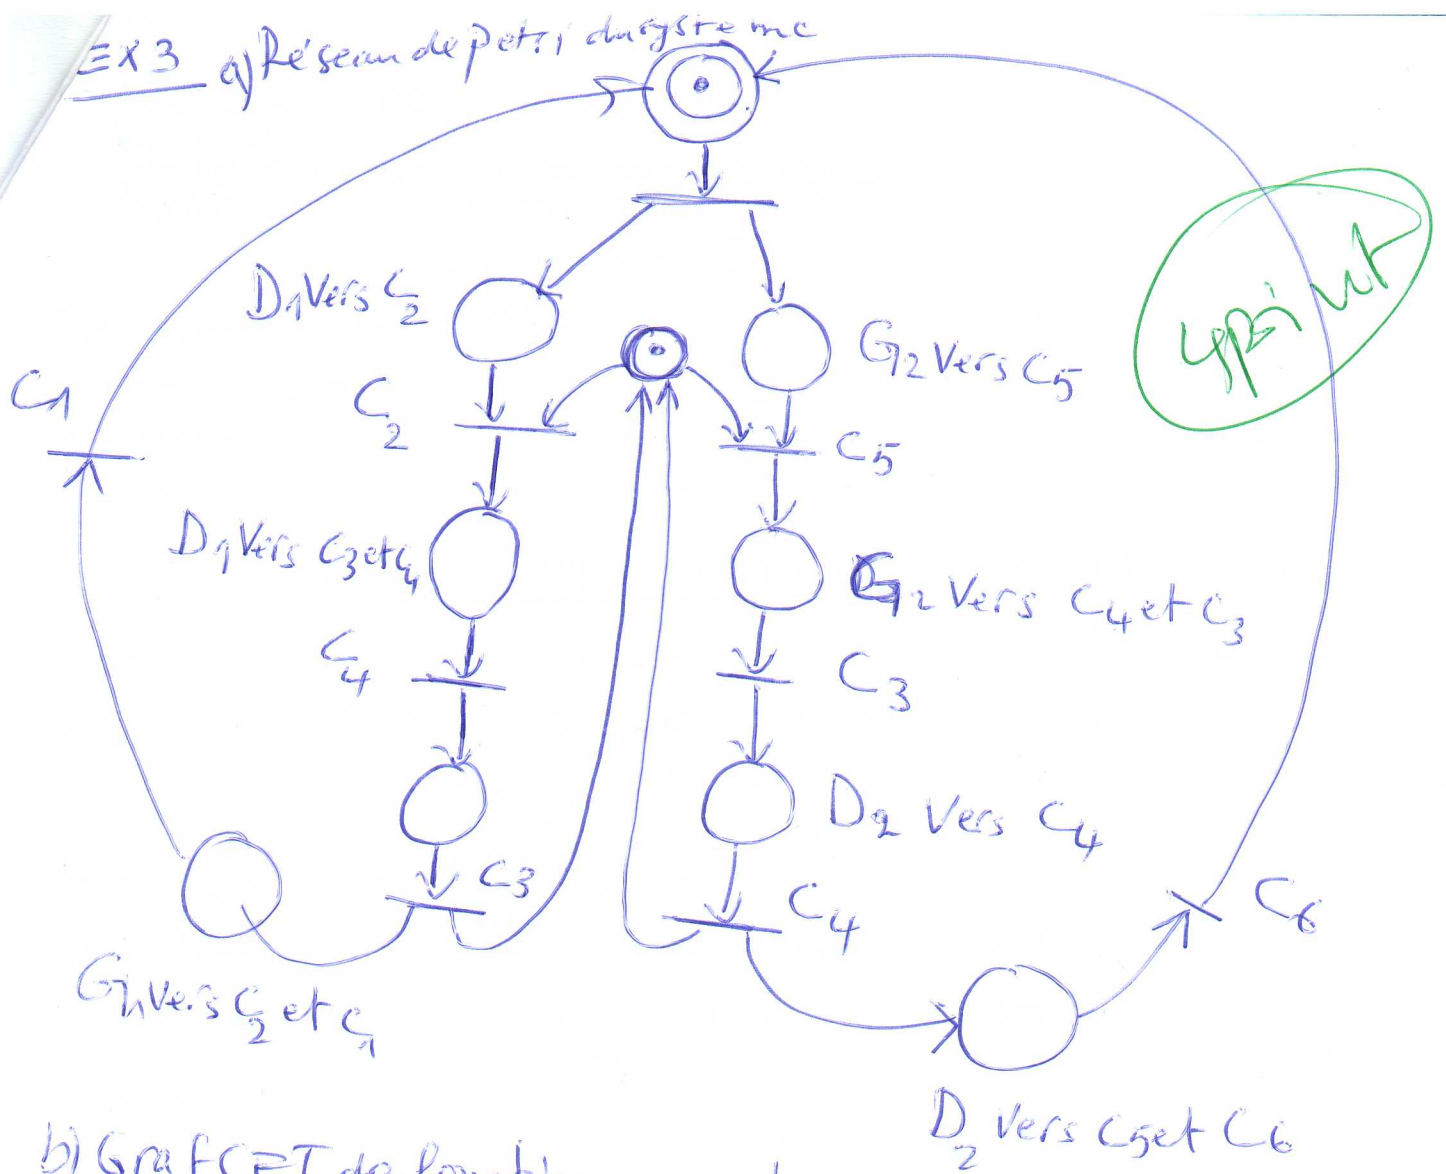 EX3 a) Réseau de petri du systeme
D1 Vers C2
G2 Vers C5
4 point
C1
C2
C5
D1 Vers C3 et C4
G2 Vers C4 et C3
C4
C3
D2 Vers C4
C3
C4
C6
G1 Vers C2 et C1
D2 Vers C5 et C6
b) GrafCET de